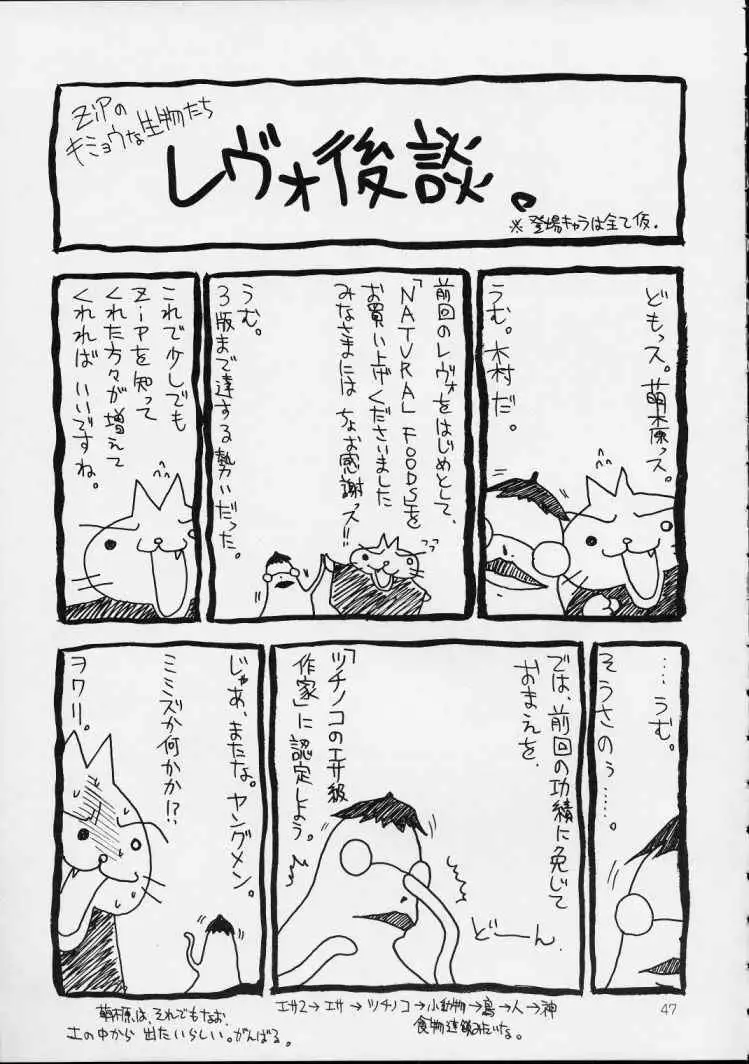 ZiPの
キミョウな生物たち
レヴォ後談。
※登場キャラは全て仮.
どもっス。萌原っス。
うむ。木村だ。
前回のレヴォをはじめとして、
「NATURAL FOODS」を
お買い上げくださいました
みなさまには ちょお感謝ッズ!!
うむ。
3版まで達する勢いだった。
これで少しでも
ZiPを知って
くれた方々が増えて
くれれば いいですね。
……うむ。
そうさのぅ……。
では、前回の功績に免じて
おまえを、
「ツチノコのエサ級
作家」に認定しよう。
どーん.
じゃあ、またな。ヤングメン。
ミミズか何かか!?
ヲワリ。
エサ2→エサ→ツチノコ→小動物→鳥→人→神
食物連鎖みたいな。
萌原は、それでもなお、
土の中から 出たいらしい。がんばる。
47